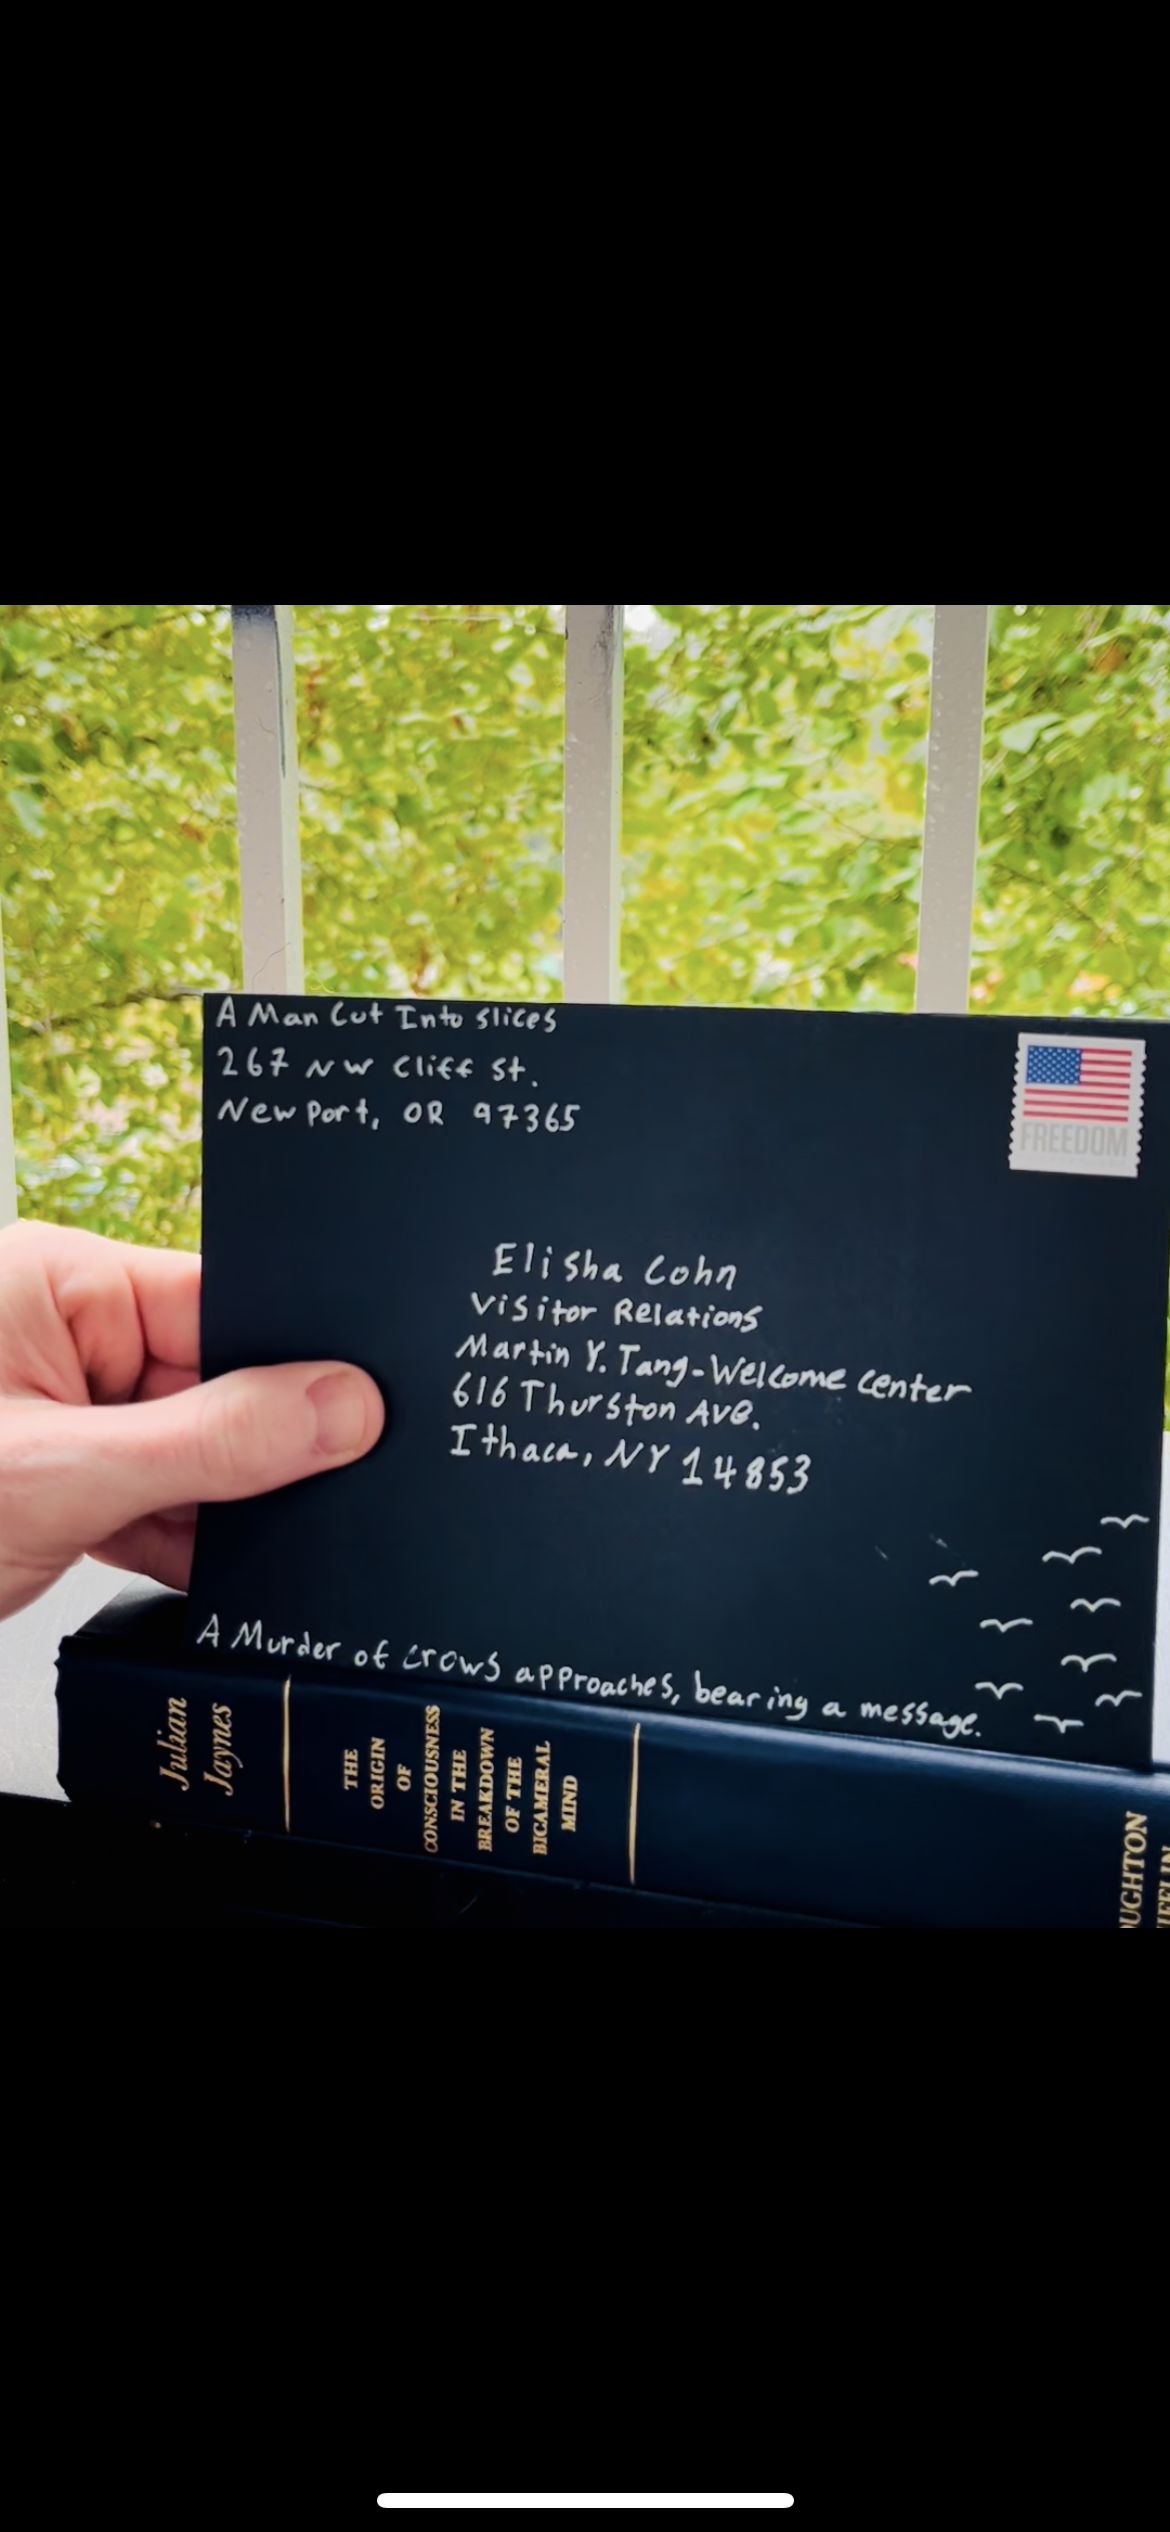 A Man Cut Into slices
267 NW Cliff St.
Newport, OR 97365
FREEDOM
Elisha Cohn
Visitor Relations
Martin Y. Tang-Welcome Center
616 Thurston Ave.
Ithaca, NY 14853
A Murder of crows approaches, bearing a message.
Julian
Jaynes
THE
ORIGIN
OF
CONSCIOUSNESS
IN THE
BREAKDOWN
OF THE
BICAMERAL
MIND
OUGHTON
IFFLIN